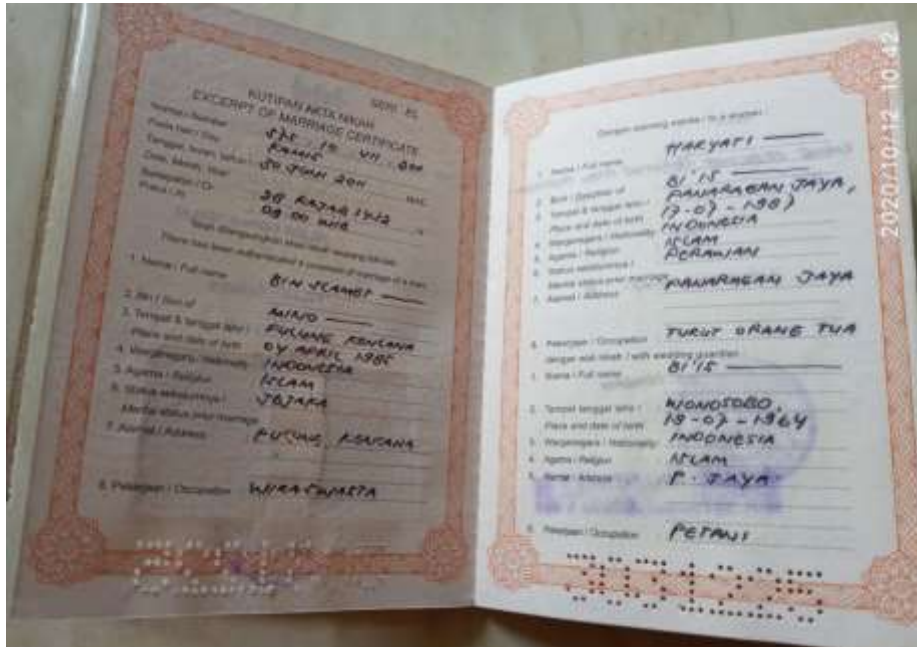 KUTIPAN AKTA NIKAH
EXCERPT OF MARRIAGE CERTIFICATE
SERI :
Nomor / Number
Pada hari / Day KAMIS
Tanggal, bulan, tahun /
Date, Month, Year 30 JUNI 2011
28 RAJAB 1432
Pukul / At 09.00 WIB
1. Nama / Full name BIN SLAMET
2. Bin / Son of MINO
3. Tempat & tanggal lahir / PULUNG KENCANA
Place and date of birth 04 APRIL 1985
4. Warganegara / Nationality INDONESIA
5. Agama / Religion ISLAM
6. Status sebelumnya / JEJAKA
Marital status prior marriage
7. Alamat / Address PULUNG KENCANA
8. Pekerjaan / Occupation WIRASWASTA
Dengan seorang wanita / to a woman :
1. Nama / Full name HARYATI
2. Binti / Daughter of BI'IS
3. Tempat & tanggal lahir / PANARAGAN JAYA,
Place and date of birth 17-07-1987
4. Warganegara / Nationality INDONESIA
5. Agama / Religion ISLAM
6. Status sebelumnya / PERAWAN
Marital status prior marriage
7. Alamat / Address PANARAGAN JAYA
8. Pekerjaan / Occupation TURUT ORANG TUA
dengan wali nikah / with wedding guardian
1. Nama / Full name BI'IS
2. Tempat tanggal lahir / WONOSOBO,
Place and date of birth 19-07-1964
3. Warganegara / Nationality INDONESIA
4. Agama / Religion ISLAM
5. Alamat / Address P. JAYA
6. Pekerjaan / Occupation PETANI
2020/10/12 10:42